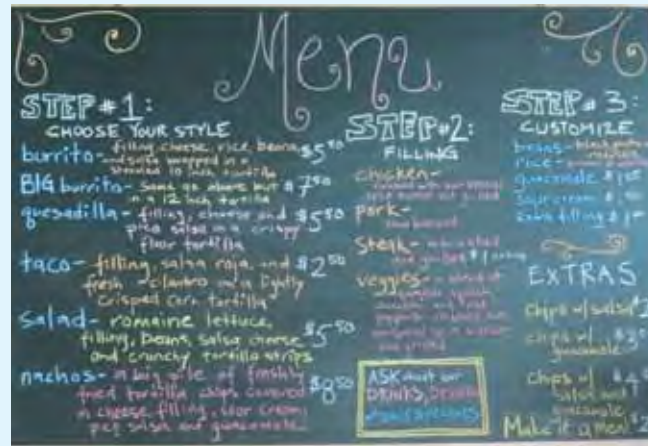 Menu
STEP #1:
CHOOSE YOUR STYLE
burrito- filling, cheese, rice, beans, $5.50
and salsa wrapped in a
steamed 10 inch tortilla
BIG burrito- same as above but $7.50
in a 12 inch tortilla
quesadilla- filling, cheese and $5.50
pico salsa in a crispy
flour tortilla
taco- filling, salsa roja, and $2.50
fresh cilantro in a lightly
crisped corn tortilla
salad- romaine lettuce,
filling, beans, salsa cheese $5.50
and crunchy tortilla strips
nachos- a big pile of freshly $8.50
fried tortilla chips covered
in cheese filling, sour cream,
pico salsa and guacamole.
STEP #2:
FILLING
chicken-
pork-
steak- marinated
and grilled $1 extra
veggies-
and grilled
ASK about our
DRINKS,
STEP #3:
CUSTOMIZE
beans-
rice-
guacamole
sour cream
extra filling
EXTRAS
chips w/ salsa $2
chips w/ $3
guacamole
chips w/ $4
salsa and
guacamole
Make it a meal $2